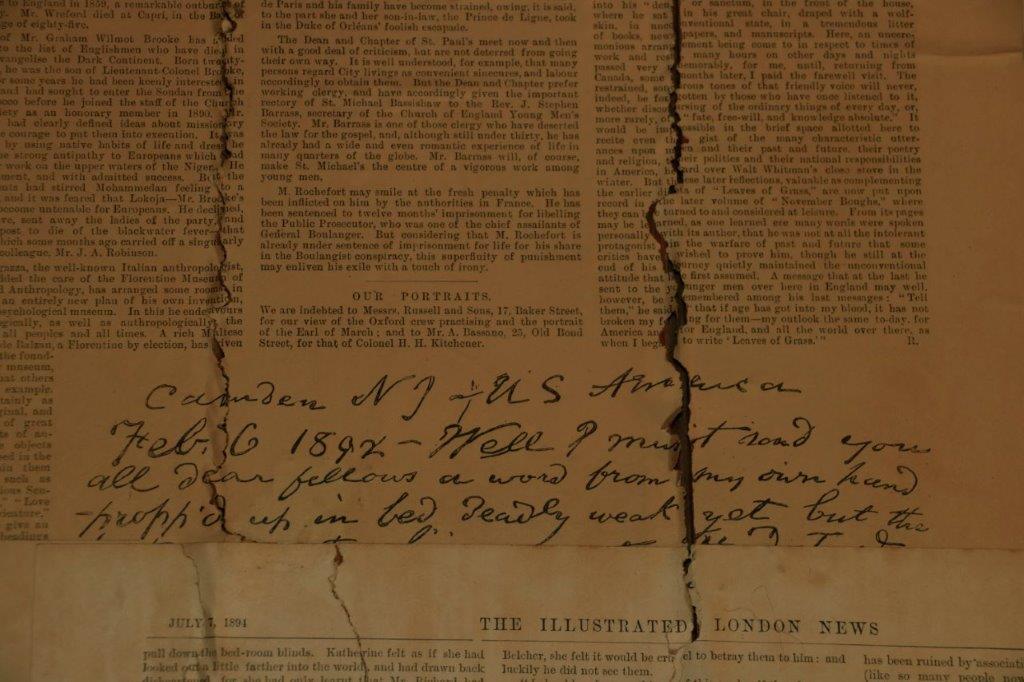 ng England in 1859, a remarkable outburst
of Mr. Wreford died at Capri, in the Bay
age of eighty-five.
of Mr. Graham Wilmot Brooke has added
to the list of Englishmen who have died in
evangelise the Dark Continent. Born twenty-
he was the son of Lieutenant-Colonel Brooke,
or some years he had been keenly interested
and had sought to enter the Soudan from
cco before he joined the staff of the Church
iety as an honorary member in 1890. Mr.
had clearly defined ideas about missionary
e courage to put them into execution. It was
by using native habits of life and dress he
he strong antipathy to Europeans which had
work on the upper waters of the Niger. He
ment, and with admitted success. But the
nts had stirred Mohammedan feeling to a
and it was feared that Lokoja—Mr. Brooke's
become untenable for Europeans. He declined,
ve, sent away the ladies of the party, and
post to die of the blackwater fever that
which some months ago carried off a singularly
colleague, Mr. J. A. Robinson.
gazza, the well-known Italian anthropologist,
dded the care of the Florentine Museum of
Anthropology, has arranged some rooms in
an entirely new plan of his own invention,
psychological museum. In this he endeavours
gically, as well as anthropologically, the
all peoples and all times. A rich Maltese
de Balzan, a Florentine by election, has given
the found-
museum,
at others
example.
tainly as
ginal, and
of great
ts of au-
objects
ed in the
in them
such as
ious Sen-
"Love
give an
headings
de Paris and his family have become strained, owing, it is said,
to the part she and her son-in-law, the Prince de Ligne, took
in the Duke of Orléans' foolish escapade.
The Dean and Chapter of St. Paul's meet now and then
with a good deal of criticism, but are not deterred from going
their own way. It is well understood, for example, that many
persons regard City livings as convenient sinecures, and labour
accordingly to obtain them. But the Dean and Chapter prefer
working clergy, and have accordingly given the important
rectory of St. Michael Bassishaw to the Rev. J. Stephen
Barrass, secretary of the Church of England Young Men's
Society. Mr. Barrass is one of those clergy who have deserted
the law for the gospel, and, although still under thirty, he has
already had a wide and even romantic experience of life in
many quarters of the globe. Mr. Barnas will, of course,
make St. Michael's the centre of a vigorous work among
young men.
M. Rochefort may smile at the fresh penalty which has
been inflicted on him by the authorities in France. He has
been sentenced to twelve months' imprisonment for libelling
the Public Prosecutor, who was one of the chief assailants of
General Boulanger. But considering that M. Rochefort is
already under sentence of imprisonment for life for his share
in the Boulangist conspiracy, this superfluity of punishment
may enliven his exile with a touch of irony.
OUR PORTRAITS.
We are indebted to Messrs. Russell and Sons, 17, Baker Street,
for our view of the Oxford crew practising and the portrait
of the Earl of March; and to Mr. A. Bassano, 25, Old Bond
Street, for that of Colonel H. H. Kitchener.
into his "den" or sanctum, in the front of the house,
where he sat in his great chair, draped with a wolf-
skin, in mid environments state, in a tremendous litter
of books, newspapers, and manuscripts. Here, an uncere-
monious arrangement being come to in respect to times of
work and rest, many hours on other days and nights
passed very memorably, for me, until, returning from
Canada, some months later, I paid the farewell visit. The
restrained, sonorous tones of that friendly voice will never,
indeed, be forgotten by those who have once listened to it,
whether discoursing of the ordinary things of every day, or,
more rarely, of "fate, free-will, and knowledge absolute." It
would be impossible in the brief space allotted here to
recite even the of the many characteristic utter-
ances upon men and their past and future, their poetry
and religion, their politics and their national responsibilities
in America, heard over Walt Whitman's close stove in the
winter. But these later reflections, valuable as complementing
the earlier ideas of "Leaves of Grass," are now put upon
record in the later volume of "November Boughs," where
they can be turned to and considered at leisure. From its pages
may be learned, as one learned ere many words were spoken
personally with its author, that he was not at all the intolerant
protagonist in the warfare of past and future that some
critics have wished to prove him, though he still at the
end of his journey quietly maintained the unconventional
attitude that he first assumed. A message that at the last he
sent to the younger men over here in England may well,
however, be remembered among his last messages: "Tell
them," he said, "that if age has got into my blood, it has not
broken my feeling for them—my outlook the same to-day, for
America and for England, and all the world over there, as
when I began to write 'Leaves of Grass.'" R.
Camden NJ – U S America
Feb. 6 1892 – Well I must send you
all dear fellows a word from my own hand
– propp'd up in bed, deadly weak yet but the
JULY 7, 1894 THE ILLUSTRATED LONDON NEWS
pull down the bed-room blinds. Katherine felt as if she had
looked out a little farther into the world, and had drawn back
Belcher, she felt it would be cruel to betray them to him: and
luckily he did not see them.
has been ruined by associati
(like so many people now